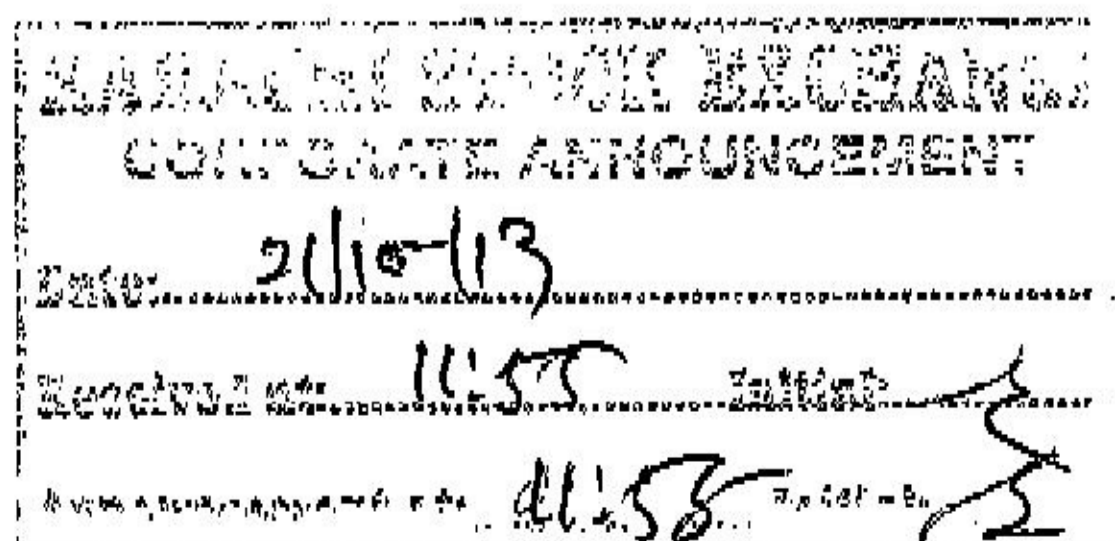 KARACHI STOCK EXCHANGE
CORPORATE ANNOUNCEMENT
Date: 21/10/13
Received at: 11:55 Initial:
11:55 Initial: